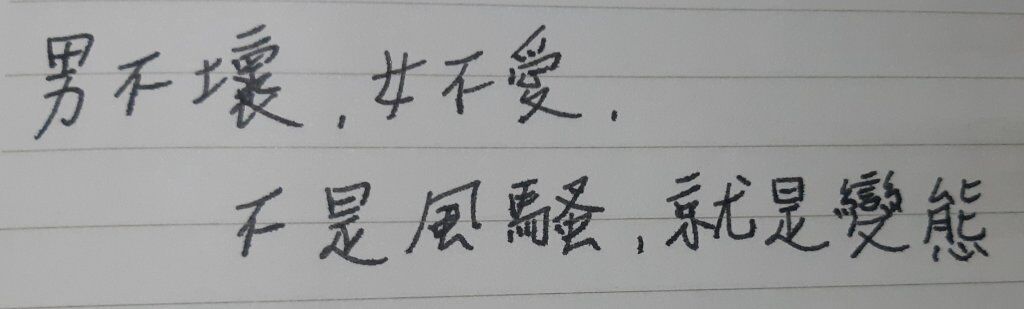 男不壞，女不愛，
不是風騷，就是變態